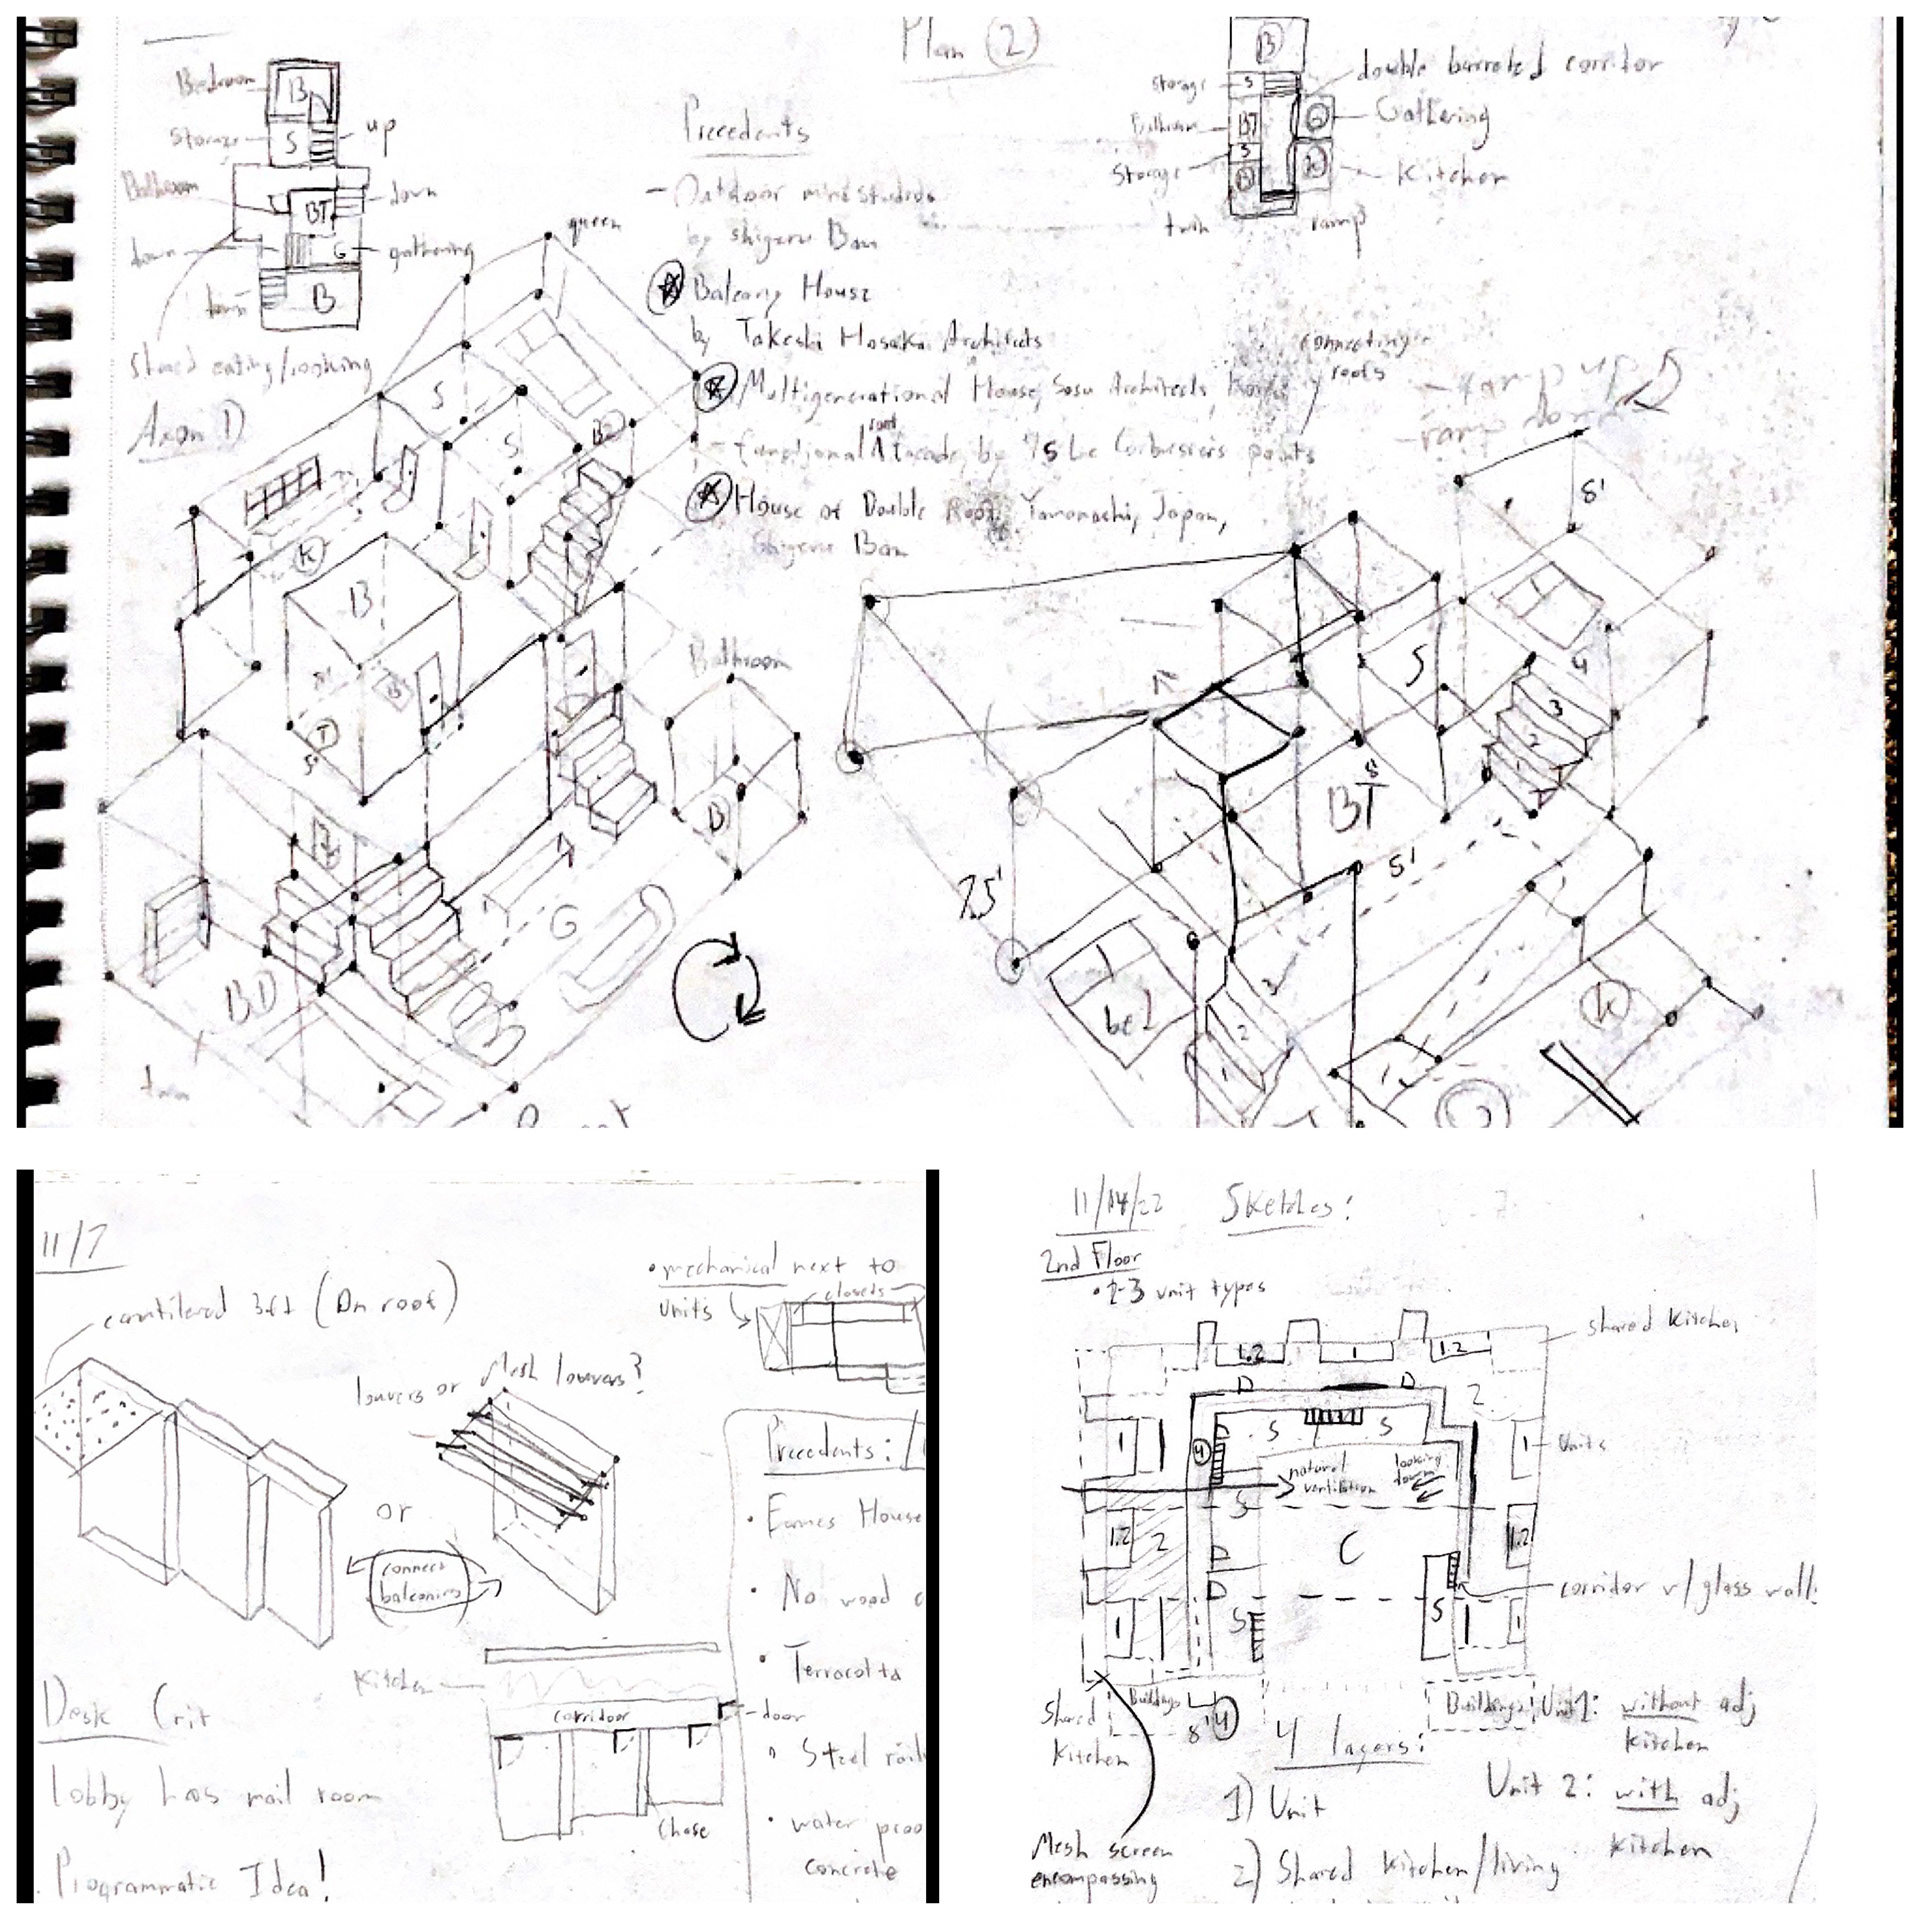 Plan 2
Bedroom
B
storage
S
up
Bathroom
BT
down
down
G
gathering
down
B
shared eating/cooking
Axon 1)
Precedents
- Outdoor mind studios
by Shigeru Ban
Balcony House
by Takeshi Hosaka Architects
Multigenerational House, Sosu Architects,
- functional roof facade, by 75 Le Corbusier's points
House of Double Roof, Yamanashi, Japan,
Shigeru Ban
B
storage
S
double barreled corridor
BT
G
Gathering
Storage
S
K
Kitchen
twin
ramp
connecting
roofs
- ramp up
- ramp down
queen
S
S
B
K
B
T
5'
Bathroom
B
G
BD
twin
8'
S
4
3
2
1
BT
8'
5'
25'
bed
2
1
K
11/7
cantilered 3ft (On roof)
louvers or Mesh louvers?
or
connect
balconies
• mechanical next to
units
closets
Precedents:
• Eames House
• No wood
• Terracotta
• Steel
• water proo
concrete
Kitchen
corridor
door
chase
Desk Crit
lobby has mail room
Programmatic Idea!
11/14/22 Sketches:
2nd Floor
• 2-3 unit types
shared kitchen
1.2
1
1.2
D
D
2
S
S
1
4
1
Units
natural
ventilation
looking
down
S
1.2
2
D
C
1.2
D
corridor w/ glass wall
1
S
S
1
Shared
kitchen
Buildings
8'
4
Buildings
Unit 1: without adj
kitchen
4 layers:
1) Unit
Unit 2: with adj
kitchen
Mesh screen
encompassing
2) Shared kitchen/living